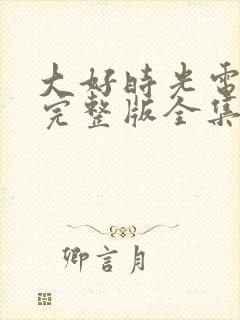 大好时光电
完整版全集
卿言月